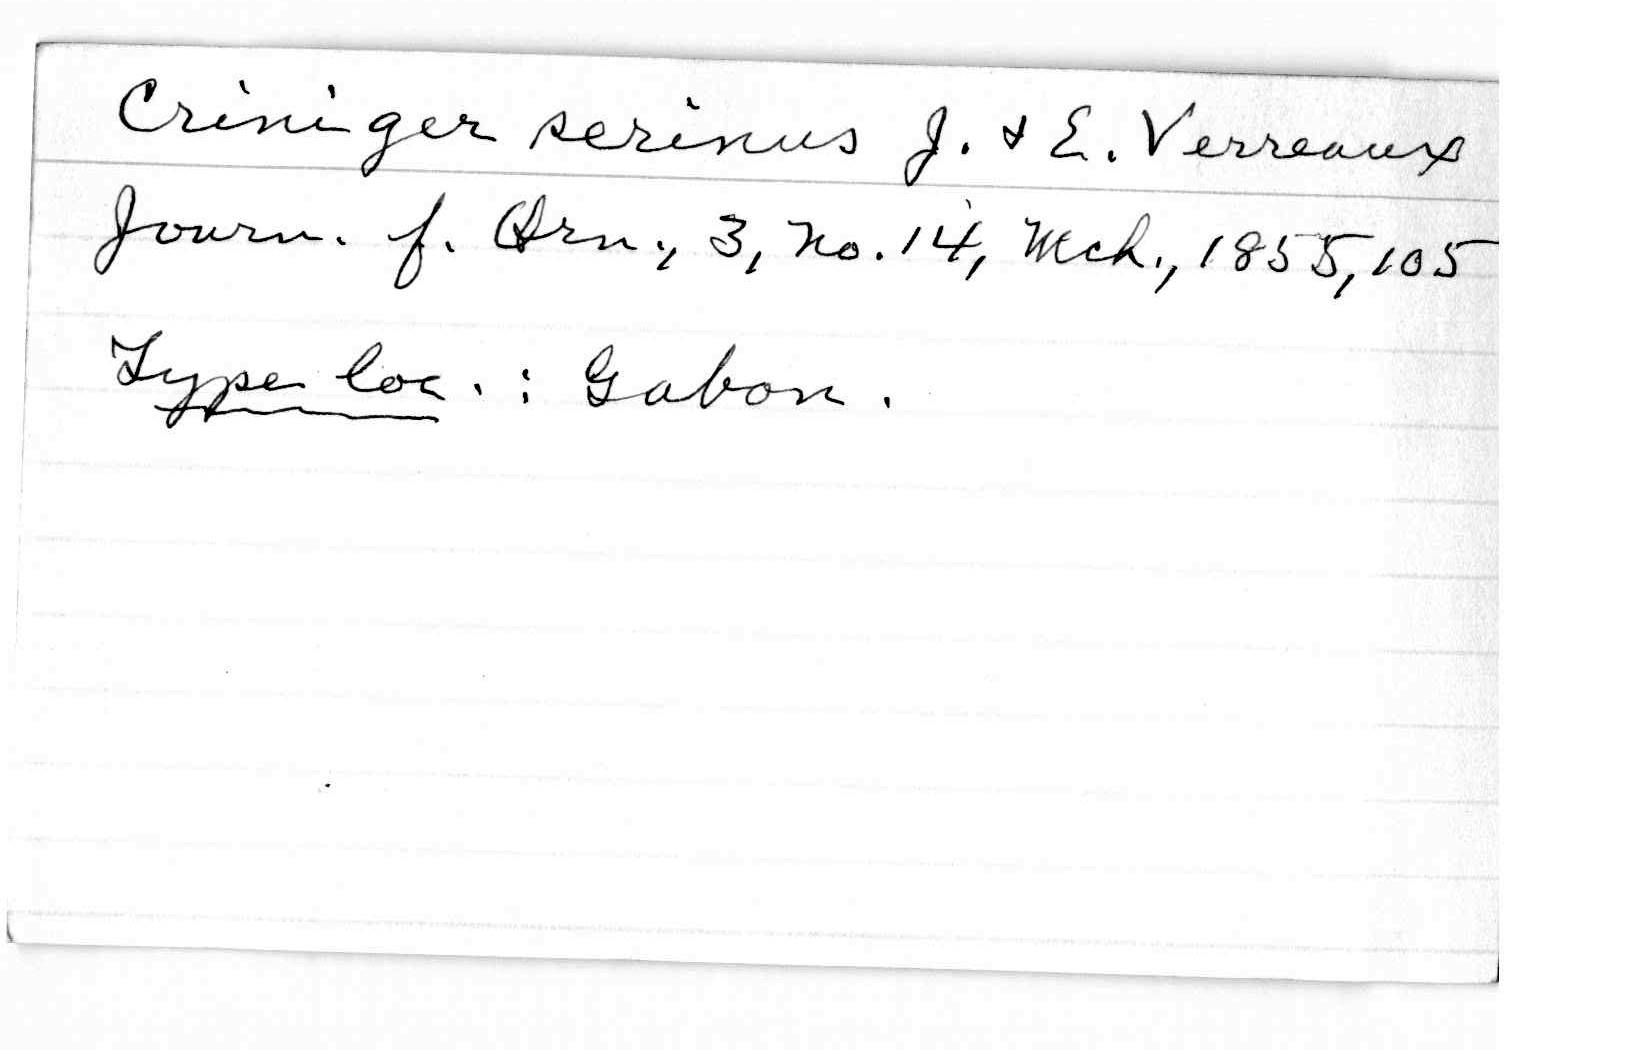 Criniger serinus J. & E. Verreaux
Journ. f. Orn., 3, no. 14, Mch., 1855, 105
Type loc.: Gabon.